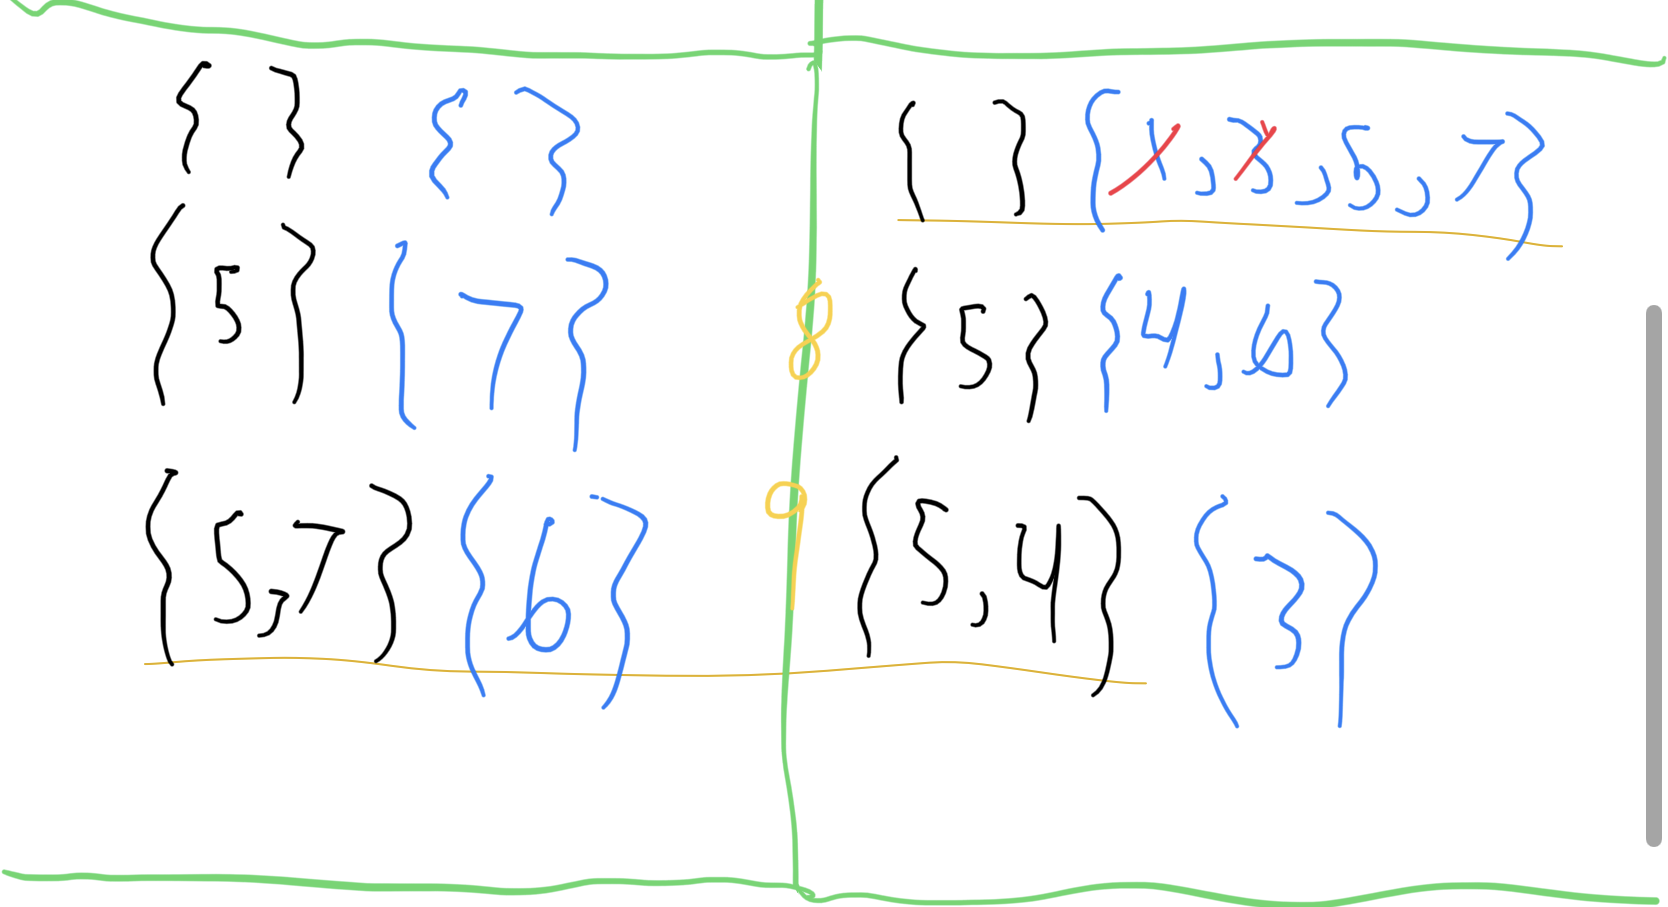 { } { }
{ 5 } { 7 }
{ 5, 7 } { 6 }
8
9
{ } { 1, 3, 5, 7 }
{ 5 } { 4, 6 }
{ 5, 4 } { 3 }